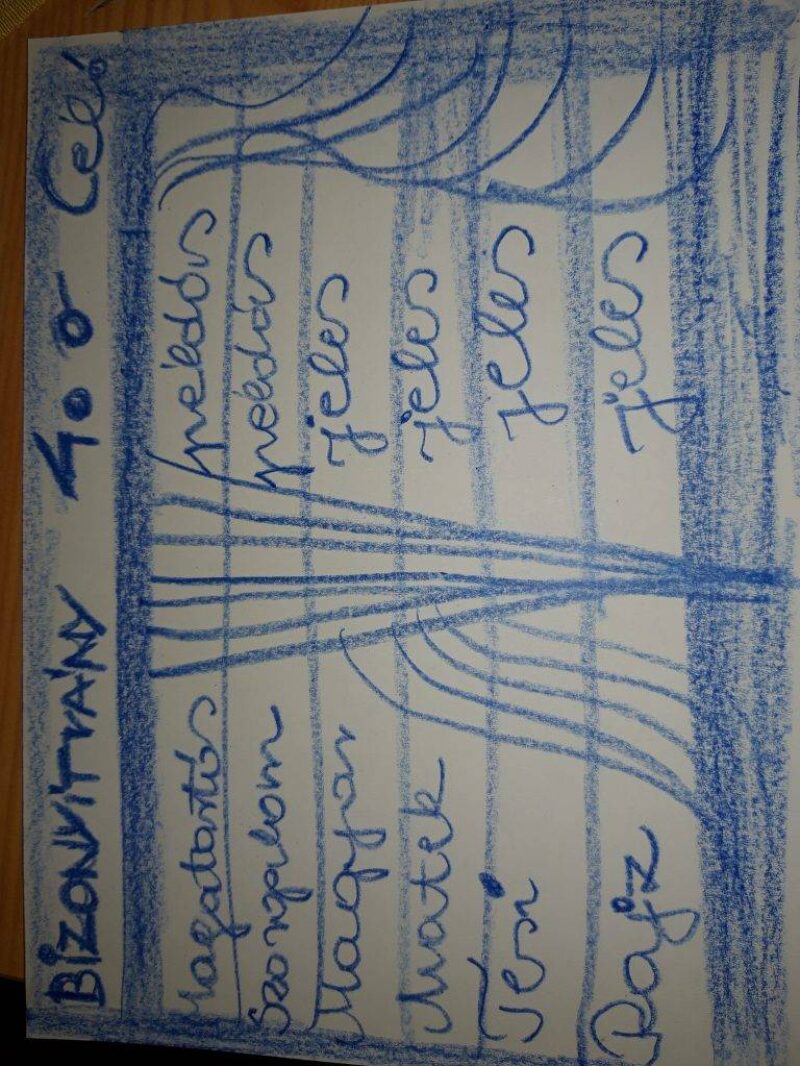 BIZONYÍTVÁNY 4. o Celó
Magatartás példás
Szorgalom példás
Magyar jeles
Matek jeles
Tesi jeles
Rajz jeles